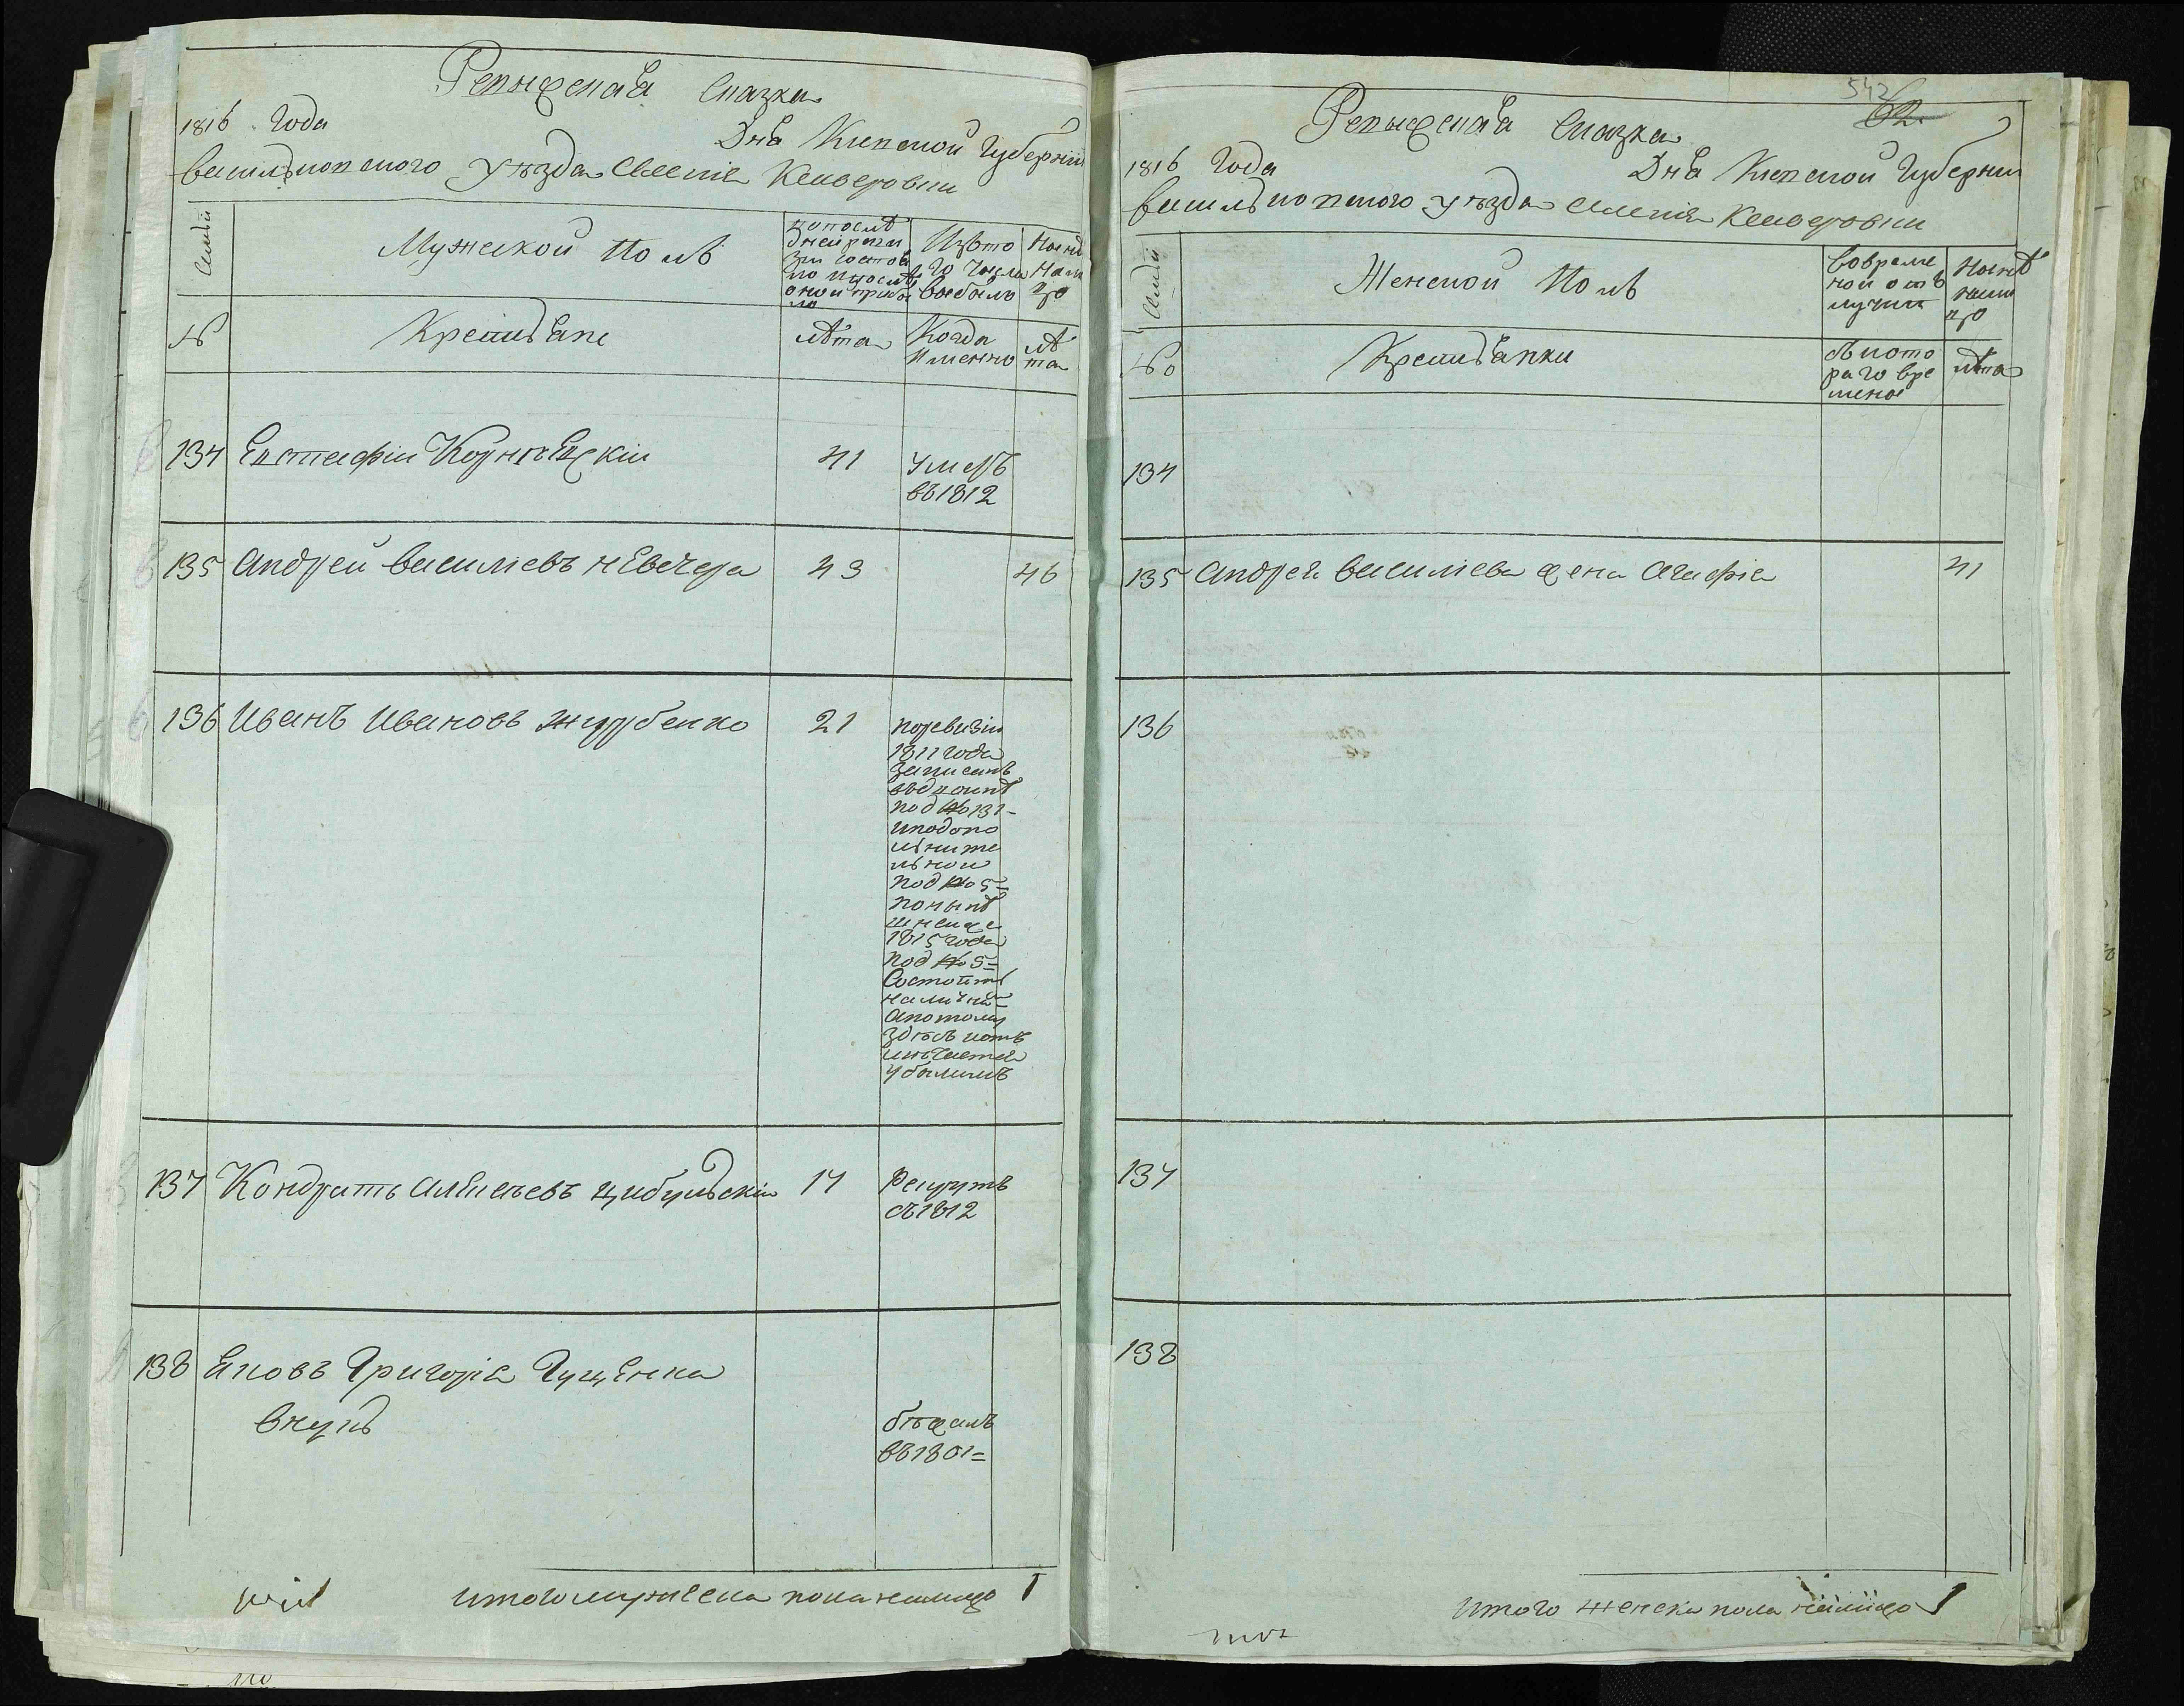 Ревизская Сказка
1816 Года Дня Киевской Губернии
васильковского уѣзда Селения Кашеровки
Семьи
Мужеской Полъ
по послѣ
дней реви
зіи состоя
ло и послѣ
оной прибы
ло
Изъто
го Числа
Выбыло
Нынѣ
На ли
цо
№
Крестьяне
лѣта
Когда
именно
лѣ
та
134 Евстафій 41 умеръ
въ 1812
135 Андрей Василіевъ Невечеря 43 46
136 Иванъ Ивановъ 21 по ревизіи
1811 года
записанъ
под № 131-
и по допо
лните
льной
под № 5=
по нынѣ
шней
1815 года
под № 5=
Состоитъ
на личной
а потому
здѣсь
убылымъ
137 Кондратъ Алексѣевъ Цибульскій 17 Рекрутъ
съ 1812
138 Яковъ Григорія Гущенка
внукъ бѣжалъ
въ 1801=
Итого мужеска пола налицо 1
542
62
Ревизская Сказка
1816 Года Дня Киевской Губернии
васильковского уѣзда Селения Кашеровки
Семьи
Женской Полъ
Во време
нной отъ
лучкѣ
Нынѣ
нали
цо
№
Крестьянки
Съ кото
раго вре
мени
лѣта
134
135 Андрея Василіева жена Агафія 41
136
137
138
Итого женска пола налицо 1